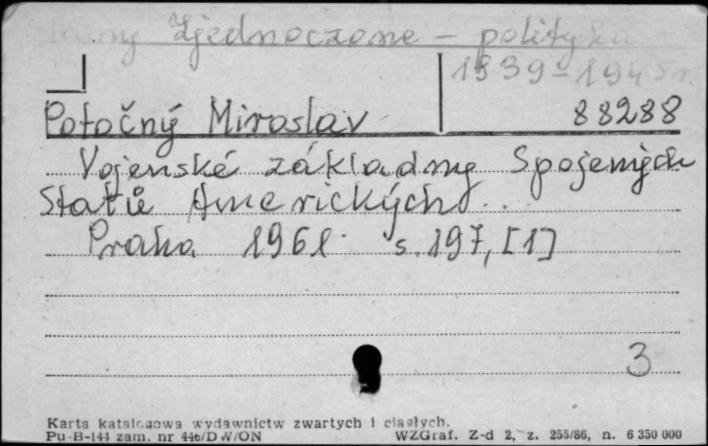 Zjednoczone - polityka
1939-1945 r.
Potočný Miroslav
88288
Vojenské základny Spojených
Statů Amerických...
Praha 1961 s. 197, [1]
3
Karta katalogowa wydawnictw zwartych i ciągłych.
Pu-B-144 zam. nr 446/DW/ON WZGraf. Z-d 2, z. 255/86, n. 6 350 000